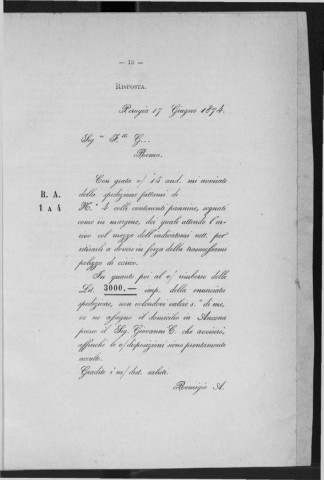 — 13 —
RISPOSTA.
Perugia 17 Giugno 1874.
Sig.ri F.lli G...
Roma.
Con grata v/ 15 and. mi avvisate
della spedizione fattami di
R. A.
1 a 4
N.° 4 colli contenenti pannine, segnati
come in margine, dei quali attendo l'ar-
rivo col mezzo dell'indicatomi vett. per
ritirarli a dovere in forza della trasmessami
polizza di carico.
In quanto poi al v/ rimborso delle
Lit. 3000,— imp. della enunciata
spedizione, non volendovi valere s. di me,
ve ne assegno il domicilio in Ancona
presso il Sig. Giovanni C. che avvisai
affinchè le v/ disposizioni sieno prontamente
accolte.
Gradite i m/ dist. saluti.
Remigio A.